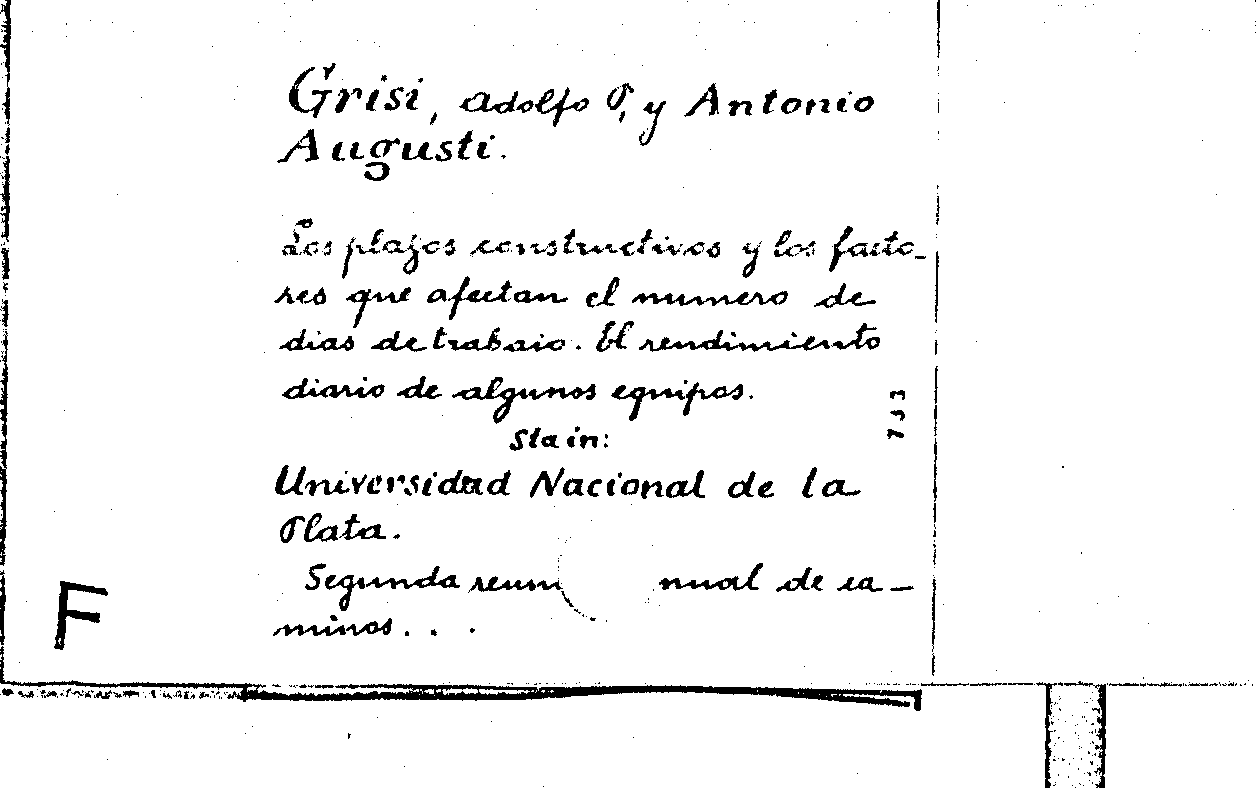 Grisi, Adolfo P, y Antonio
Augusti.
Los plazos constructivos y los facto-
res que afectan el numero de
dias de trabaio. El rendimiento
diario de algunos equipos.
Sla in:
Universidad Nacional de la
Plata.
Segunda reun nual de ca-
minos...
733
F